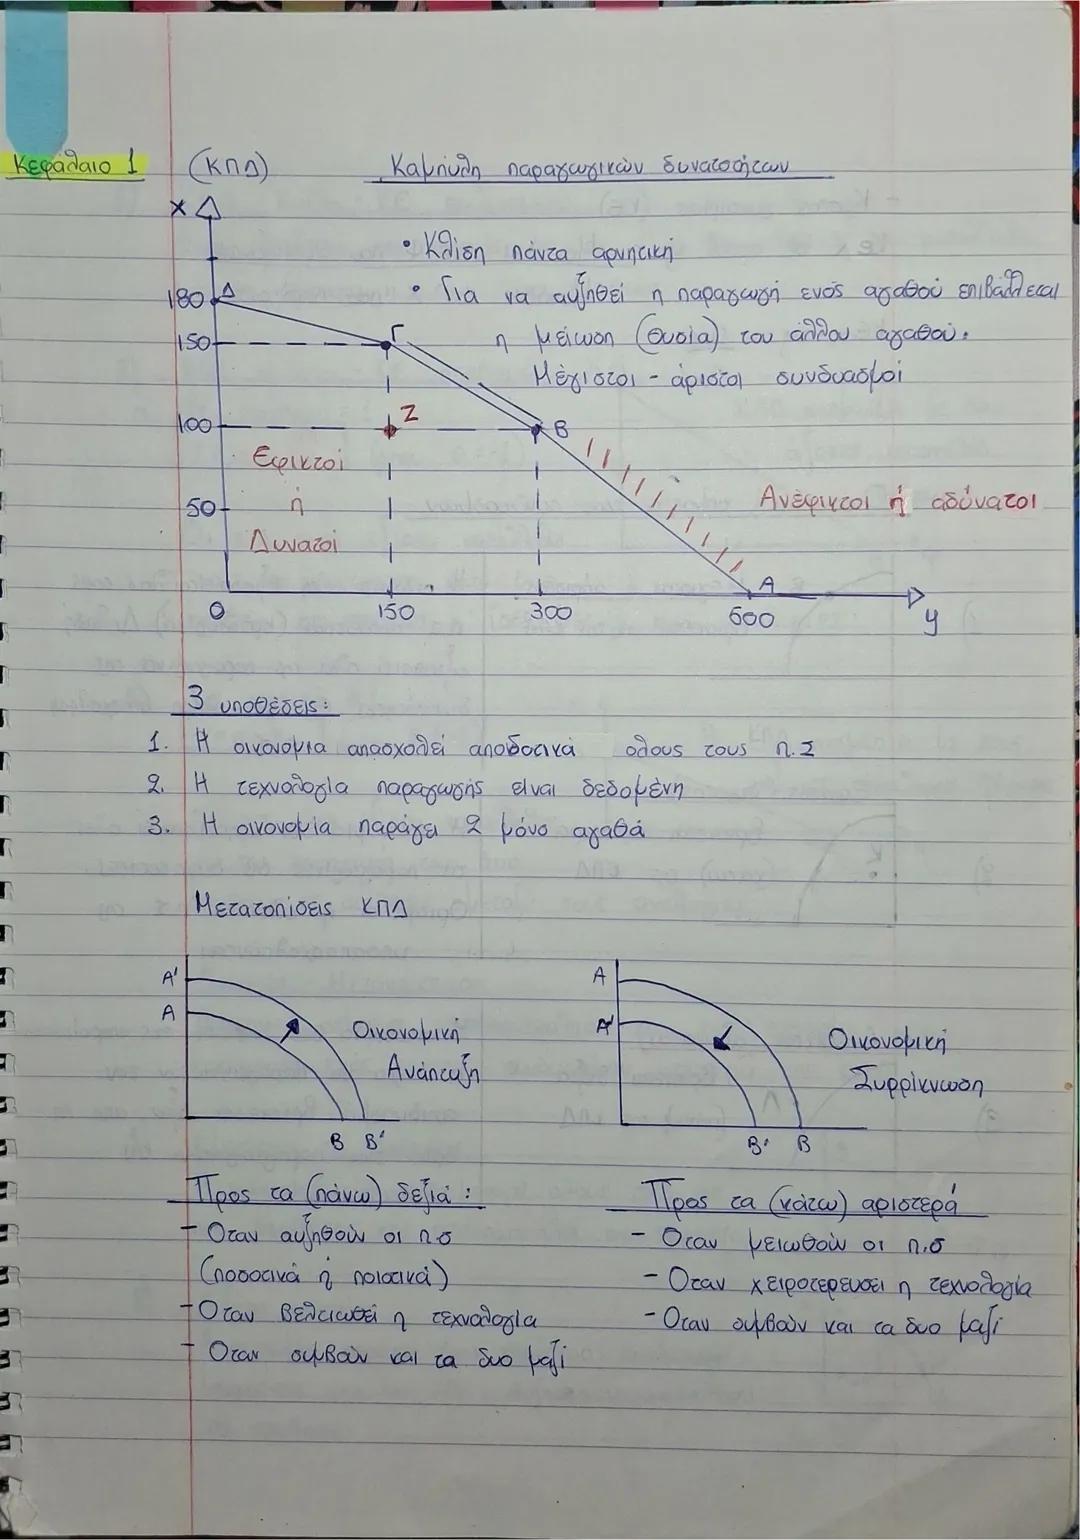 Κεφάλαιο 1 (ΚΠΔ) Καμπύλη παραγωγικών δυνατοτήτων
Χ
• Κλίση πάντα αρνητική
180 Δ • Για να αυξηθεί η παραγωγή ενός αγαθού επιβάλλεται
150 Γ η μείωση (θυσία) του άλλου αγαθού.
Μέγιστοι - άριστοι συνδυασμοί
100 Ζ Β
Εφικτοί
50 ή Ανέφικτοι ή αδύνατοι
Δυνατοί
Α
0 150 300 600 y
3 υποθέσεις:
1. Η οικονομια απασχολεί αποδοτικά όλους τους π.Σ
2. Η τεχνολογία παραγωγής είναι δεδομένη
3. Η οικονομία παράγει 2 μόνο αγαθά
Μετατοπίσεις ΚΠΔ
Α' Α
Α Α'
Οικονομική Ανάπτυξη
Οικονομική Συρρίκνωση
Β Β' Β' Β
Προς τα (πάνω) δεξιά:
- Οταν αυξηθούν οι π.σ
(ποσοτικά ή ποιοτικά)
- Οταν βελτιωθεί η τεχνολογία
- Οταν συμβούν και τα δυο μαζί
Προς τα (κάτω) αριστερά
- Οταν μειωθούν οι π.σ
- Οταν χειροτερευσει η τεχνολογία
- Οταν συμβούν και τα δυο μαζί